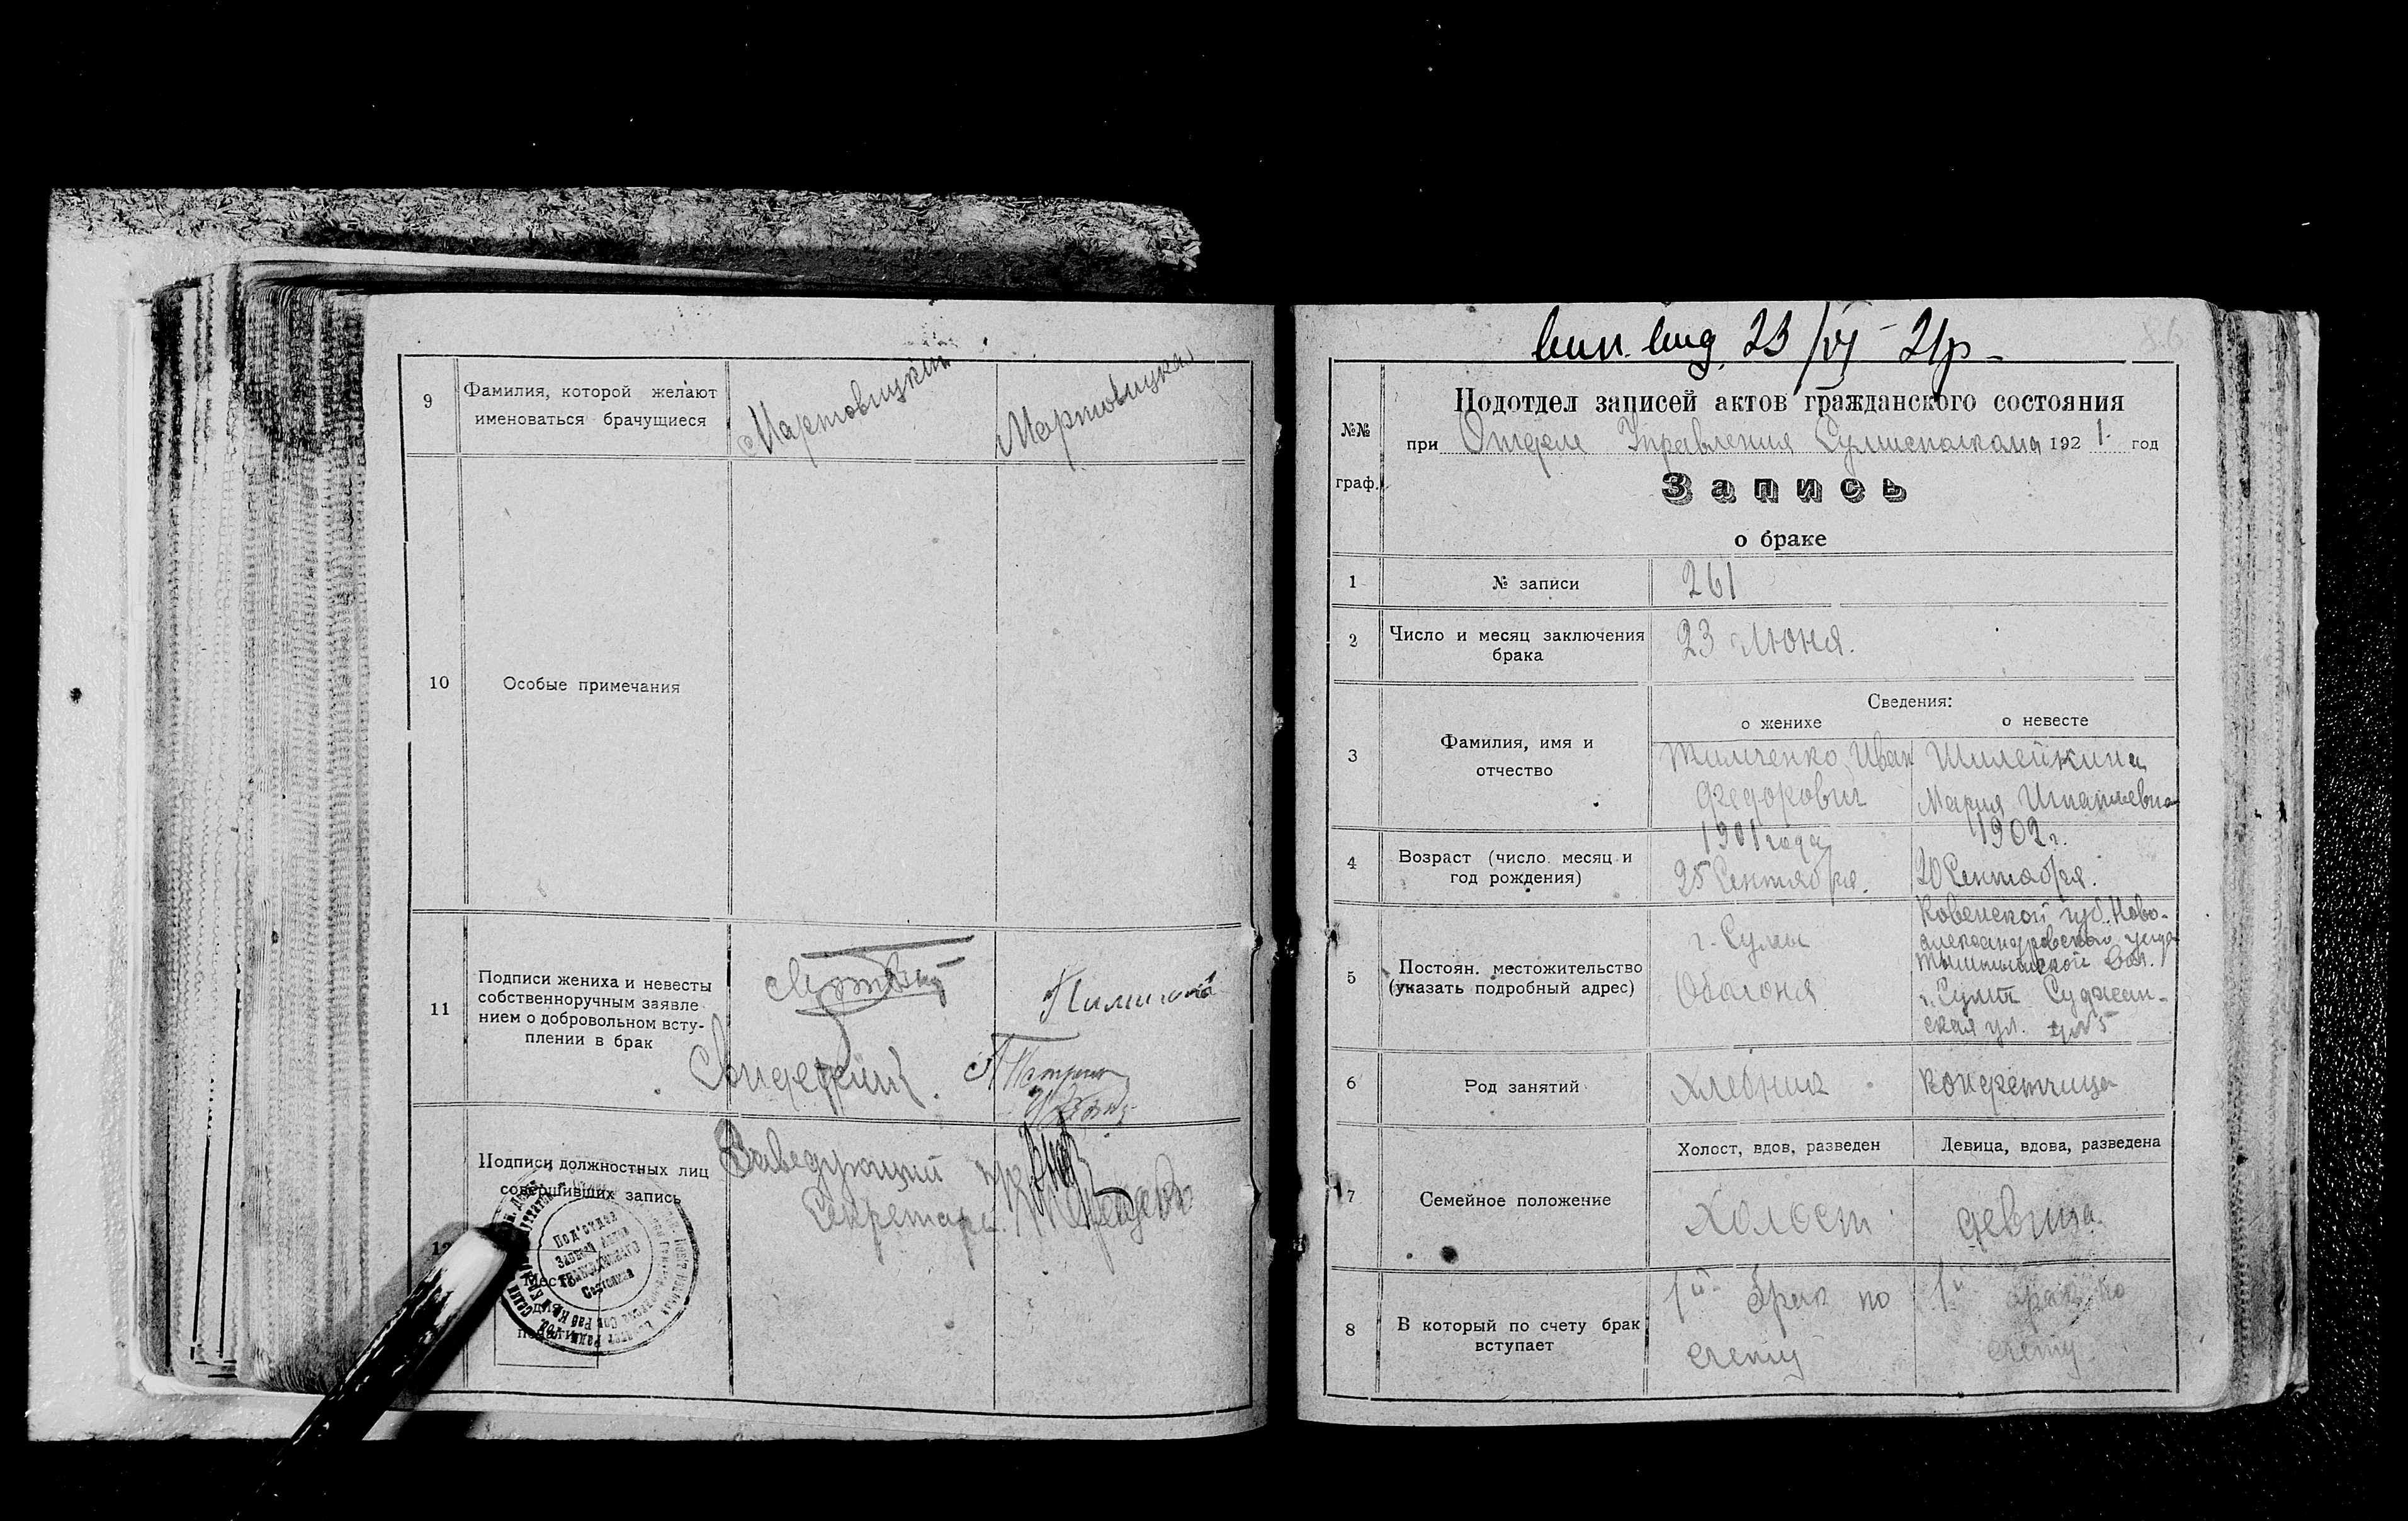 9
Фамилия, которой желают
именоваться брачущиеся
Мартовицкий
Мартовицкая
10
Особые примечания
11
Подписи жениха и невесты
собственноручным заявле
нием о добровольном всту-
плении в брак
Подписи должностных лиц
совершивших запись
Заведующий
Секретарь
Под'отдел
Записей Актов
Гражданского
Состояния
23/VI 21р.
86
№№
граф.
Подотдел записей актов гражданского состояния
при Отделе Управления Сумисполкома 1921 год
Запись
о браке
1
№ записи
261
2
Число и месяц заключения
брака
23 Июня.
3
Фамилия, имя и
отчество
Сведения:
о женихе
о невесте
Тимченко Иван
Федорович
Шилейкина
Мария Игнатьевна
4
Возраст (число месяц и
год рождения)
1901 года
25 Сентября.
1902 г.
20 Сентября.
5
Постоян. местожительство
(указать подробный адрес)
г. Сумы
Оболоня
Ковенской губ. Ново-
александровской уезда
вол.
г. Сумы Суджан-
ская ул. № 5
6
Род занятий
Хлебник
конфетчица
7
Семейное положение
Холост, вдов, разведен
Девица, вдова, разведена
Холост
девица.
8
В который по счету брак
вступает
1й брак по
счету
1й брак по
счету